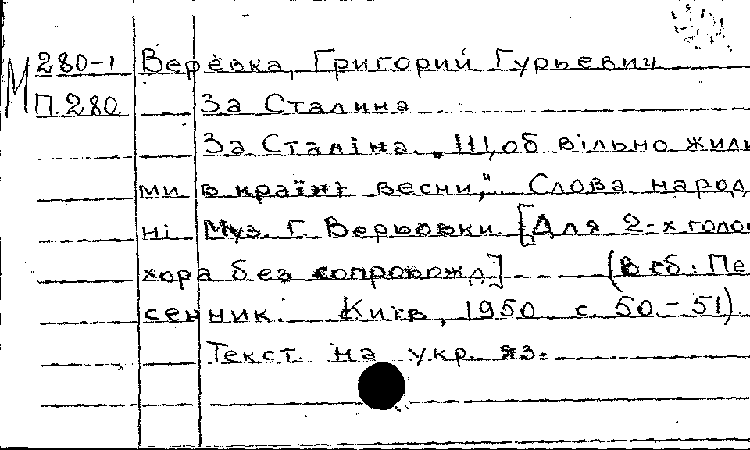 М 280-1 Верёвка, Григорий Гурьевич
П 280 За Сталина
За Сталіна. „Щоб вільно жили
ми в країні весни," Слова народ
ні Муз. Г. Верьовки [Для 2-х голос
хора без сопровожд] (В сб: Пе
сенник. Київ, 1950 с 50-51)
Текст на укр. яз.